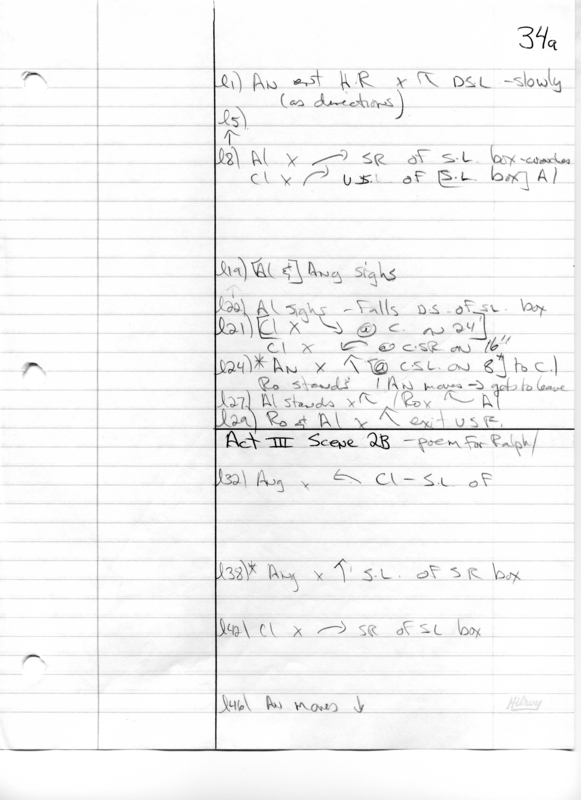 34a
l1) AN ent H.R x ↖ DSL - slowly
(as directions)
l5)
↑
l8) Al x → SR of S.L. box - crouches
Cl x → U.S.L of [S.L box] Al
l19) [Al &] Ang sighs
l20) Al sighs - Falls D.S. of SL box
l21) [Cl x ↘ @ C. on 24"]
Cl x ← @ C.SR on 16"
l24)* AN x ↑ [@ C.S.L. on 8"] to C.
Ro stands / AN moves → gets to leave
l27) Al stands x ↖ / Ro x ↖ Al
l29) Ro & Al x ↖ exit USR.
Act III Scene 2B - poem for Ralph/
l32) Ang x ← Cl - S.L of
l38)* Ang x ↑ S.L. of SR box
l42) Cl x → SR of SL box
l46) AN moves ↓
Hilroy